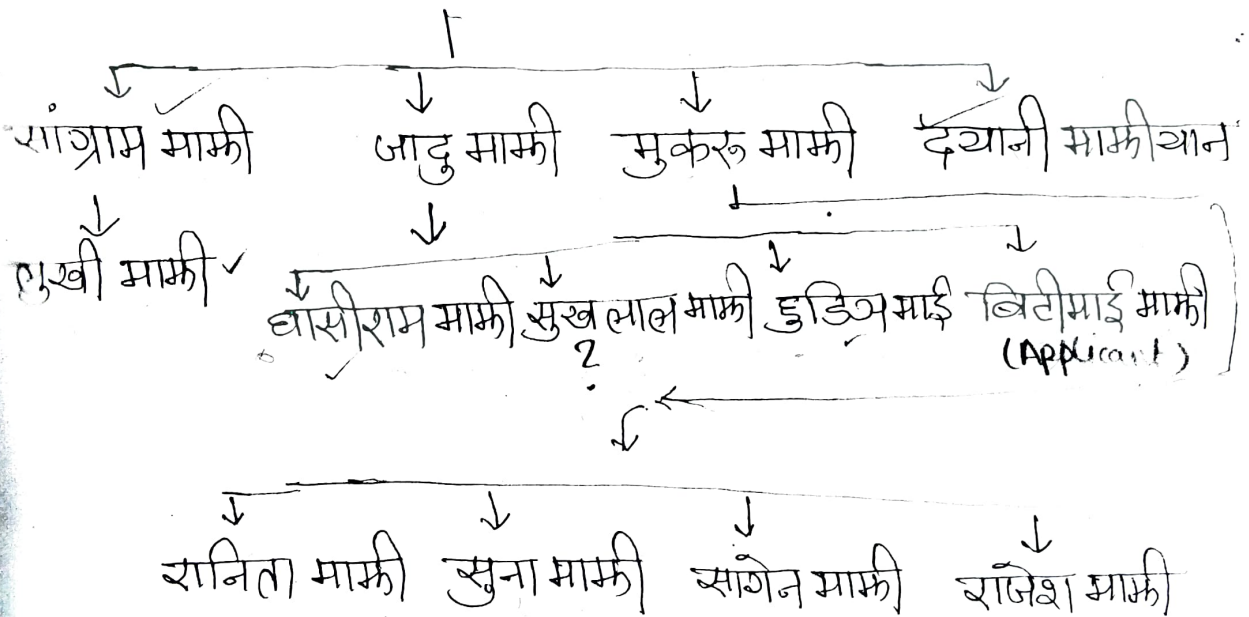 सांग्राम माझी जादु माझी मुकरू माझी देयानी माझीयान
लुखी माझी
घासीराम माझी सुखलाल माझी डुडिञ माई बिटीमाई माझी
?
(Applicant)
रानिता माझी सुना माझी सागेन माझी राजेश माझी